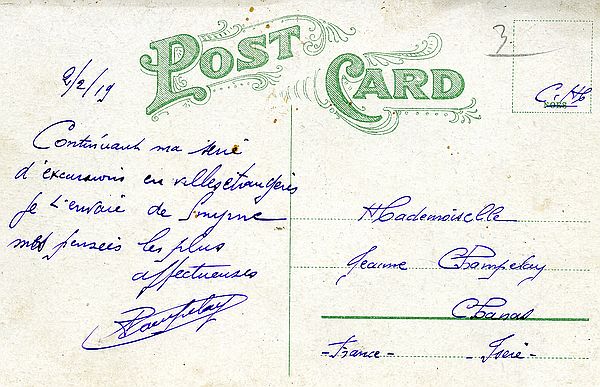 POST CARD
3
2/2/19
C. H
Continuant ma série
d'excursions en villes étrangères
Je t'envoie de Smyrne
mes pensées les plus
affectueuses
Champelay
Mademoiselle
Jeanne Champelay
Chanas
- France - Isère -